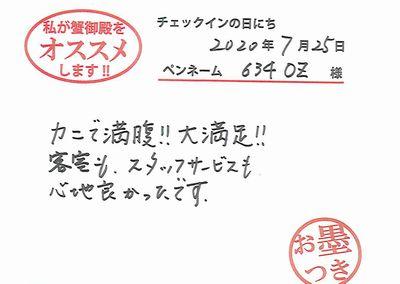 私が蟹御殿を
オススメ
します!!
チェックインの日にち
2020年7月25日
ペンネーム 634 OZ 様
カニで満腹!! 大満足!!
客室も、スタッフサービスも
心地良かったです.
お墨
つき